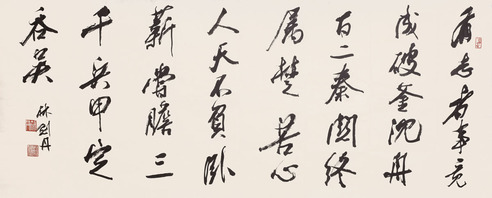 有志者事竟
成破釜沈舟
百二秦關終
屬楚苦心
人天不負卧
薪嘗膽三
千兵甲定
吞吳
林劍丹